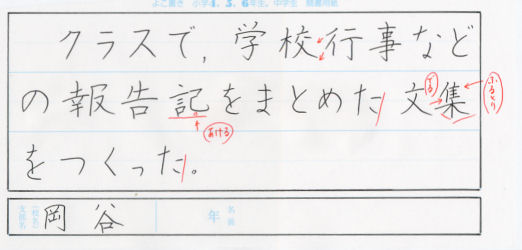 よこ書き 小学4、5、6年生、中学生 競書用紙
クラスで、学校行事など
の報告記をまとめた文集
をつくった。
あける
でる
ふるとり
支部名(校名) 岡谷 年 名前